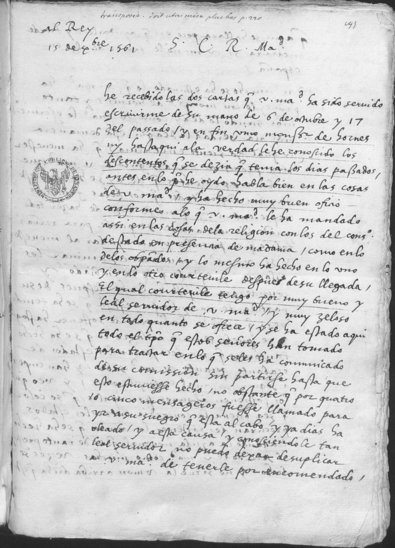 Al Rey
15 de xbre 1561
S. C. R. Mag.d
he recebido las dos cartas q̃ v. ma.d ha sido servido
escrivirme de su mano de 6 de otubre y 17
del passado, y en fin vino monsr de hornes
y hasta qui a la verdad le he conoscido los
descontentos q̃ se dezia q̃ tenia los dias passados,
antes en lo q̃ he oydo habla bien en las cosas
de v. ma.d, y ha hecho muy buen oficio
conforme a lo q̃ v. ma.d le ha mandado
assi en las cosas de la religion con los del cons.o
destado en presencia de madama, como en lo
de los obpados, y lo mesmo ha hecho en lo uno
y en lo otro courteuile despues de su llegada,
el qual courteuile tengo por muy bueno y
leal servidor de v. ma.d y muy zeloso
en todo quanto se ofrece, y se ha estado aqui
todo el tpo q̃ estos señores han tomado
para tratar en lo q̃ se les ha comunicado
de su comission sin partirse hasta que
esto estuviesse hecho no obstante q̃ por quatro
o cinco mensageros fuesse llamado para
yr a su suegro q̃ esta al cabo, y ya dias ha
oleado, y a esta causa y conosciendole tan
leal servidor, no puedo dexar de suplicar
a v. ma.d de tenerle por encomendado,